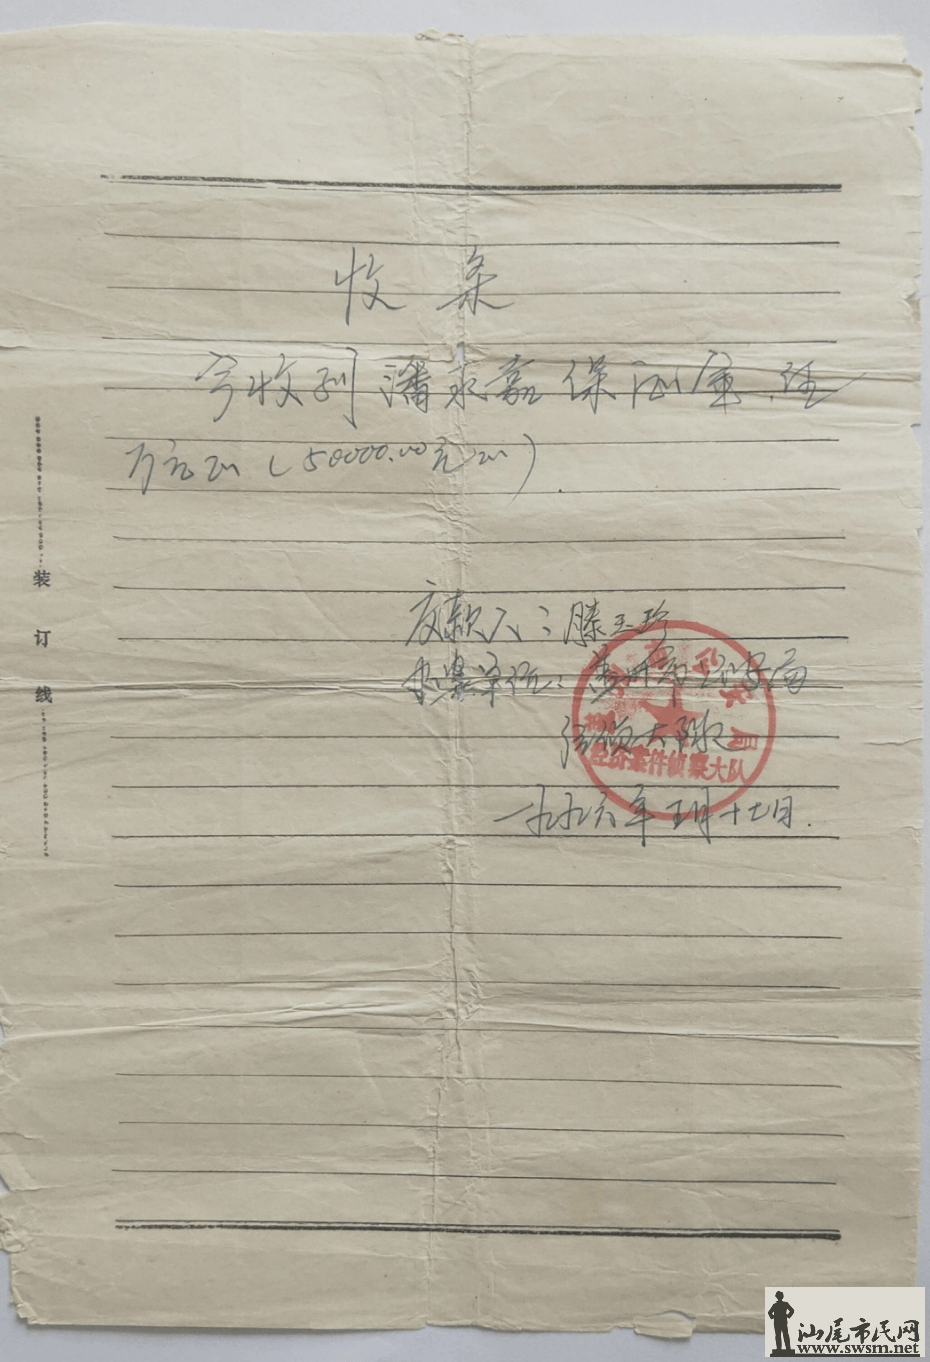 收条
今收到潘永嘉保证金伍
万元正(50000.00元正)
交款人:滕玉珍
办案单位: 市公安局
经侦大队
市公安局
经济案件侦察大队
一九九六年五月十七日.
装订线
汕尾市民网
www.swsm.net